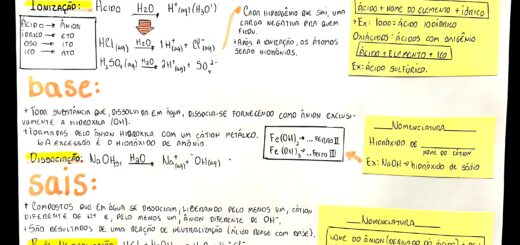 IONIZAÇÃO: ÁCIDO H2O H+(H3O+)
ÁCIDO → ÂNION
ÍDRICO → ETO
OSO → ITO
ICO → ATO
HCl(aq) H2O 1H+ + Cl-
H2SO4(aq) H2O 2H+(aq) + SO4 2-
CADA HIDROGÊNIO QUE SAI, UMA
CARGA NEGATIVA PRA QUEM
FICOU.
* APÓS A IONIZAÇÃO, OS ÁTOMOS
SERÃO HIDRÔNIOS.
ÁCIDO + NOME DO ELEMENTO + ÍDRICO
Ex: ÁCIDO IODÍDRICO
OXIÁCIDOS: ÁCIDOS COM OXIGÊNIO
ÁCIDO + ELEMENTO + ICO
Ex: ÁCIDO SULFÚRICO.
base:
* TODA SUBSTÂNCIA QUE, DISSOLVIDA EM ÁGUA, DISSOCIA-SE FORNECENDO COMO ÂNION EXCLUSI-
VAMENTE A HIDROXILA (OH).
* FORMADAS PELO ÂNION HIDROXILA COM UM CÁTION METÁLICO.
↳ A EXCESSÃO É O HIDRÓXIDO DE AMÔNIA.
Fe(OH)2 → ... FERRO II
Fe(OH)3 → ... FERRO III
DISSOCIAÇÃO: NaOH(s) H2O Na+(aq) + OH-(aq)
NOMENCLATURA
HIDRÓXIDO DE NOME DO CÁTION
Ex: NaOH → HIDRÓXIDO DE SÓDIO
sais:
* COMPOSTOS QUE EM ÁGUA SE DISSOCIAM, LIBERANDO PELO MENOS UM, CÁTION
DIFERENTE DE H+ E, PELO MENOS UM, ÂNION DIFERENTE DE OH-.
* SÃO RESULTADOS DE UMA REAÇÃO DE NEUTRALIZAÇÃO (ÁCIDO REAGE COM BASE).
NOMENCLATURA
NOME DO ÂNION (DERIVADO DO ÁCIDO) + DE